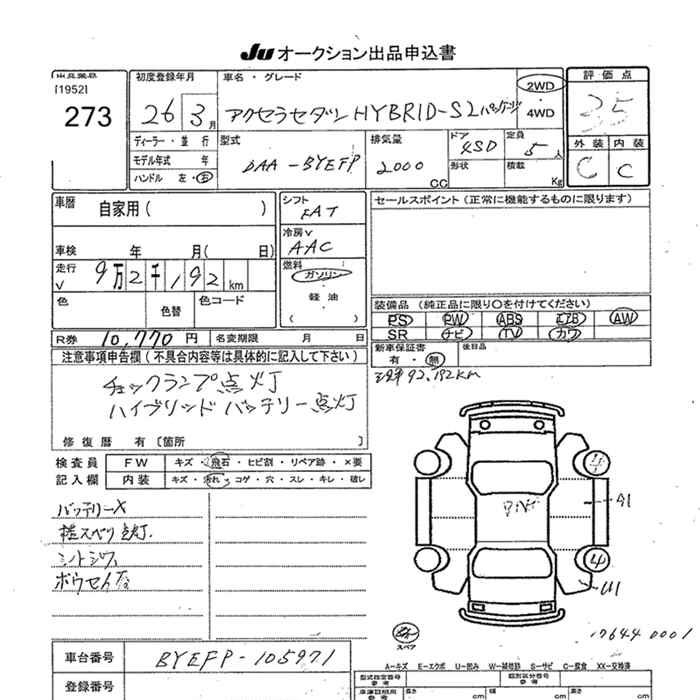 JU オークション出品申込書
[1952]
273
初度登録年月
26 3月
車名・グレード
アクセラセダン HYBRID-S Lパッケージ
2WD
・
4WD
評価点
3.5
ディーラー・並行
モデル年式 年
ハンドル 左・右
型式
DAA-BYEFP
排気量
2000 CC
ドア
4SD
形状
定員
5人
積載
Kg
外装 内装
C C
車歴
自家用( )
シフト
FAT
冷房
AAC
セールスポイント(正常に機能するものに限ります)
車検 年 月( 日)
走行
9万2千192km
燃料
ガソリン
・
軽油
・
( )
色 色替 色コード
装備品(純正品に限り〇を付けてください)
PS PW ABS エアB AW
SR ナビ TV カワ
R券 10,770円 名変期限 月 日
新車保証書
有・無
後日品
92,192km
注意事項申告欄(不具合内容等は具体的に記入して下さい)
チェックランプ点灯
ハイブリッドバッテリー点灯
修復歴 有〔箇所 〕
検査員
記入欄
FW キズ・飛石・ヒビ割・リペア跡・×要
内装 キズ・汚れ・コゲ・穴・スレ・キレ・破レ
バッテリーX
横スベリ点灯.
シートシワ
A1
スペア
17644 0001
車台番号 BYEFP-105971
登録番号
A-キズ E-エクボ U-凹み W-補修跡 S-サビ C-腐食 XX-交換済
型式指定番号
参考
類別区分番号
参考
長さ cm 幅 cm 高さ cm